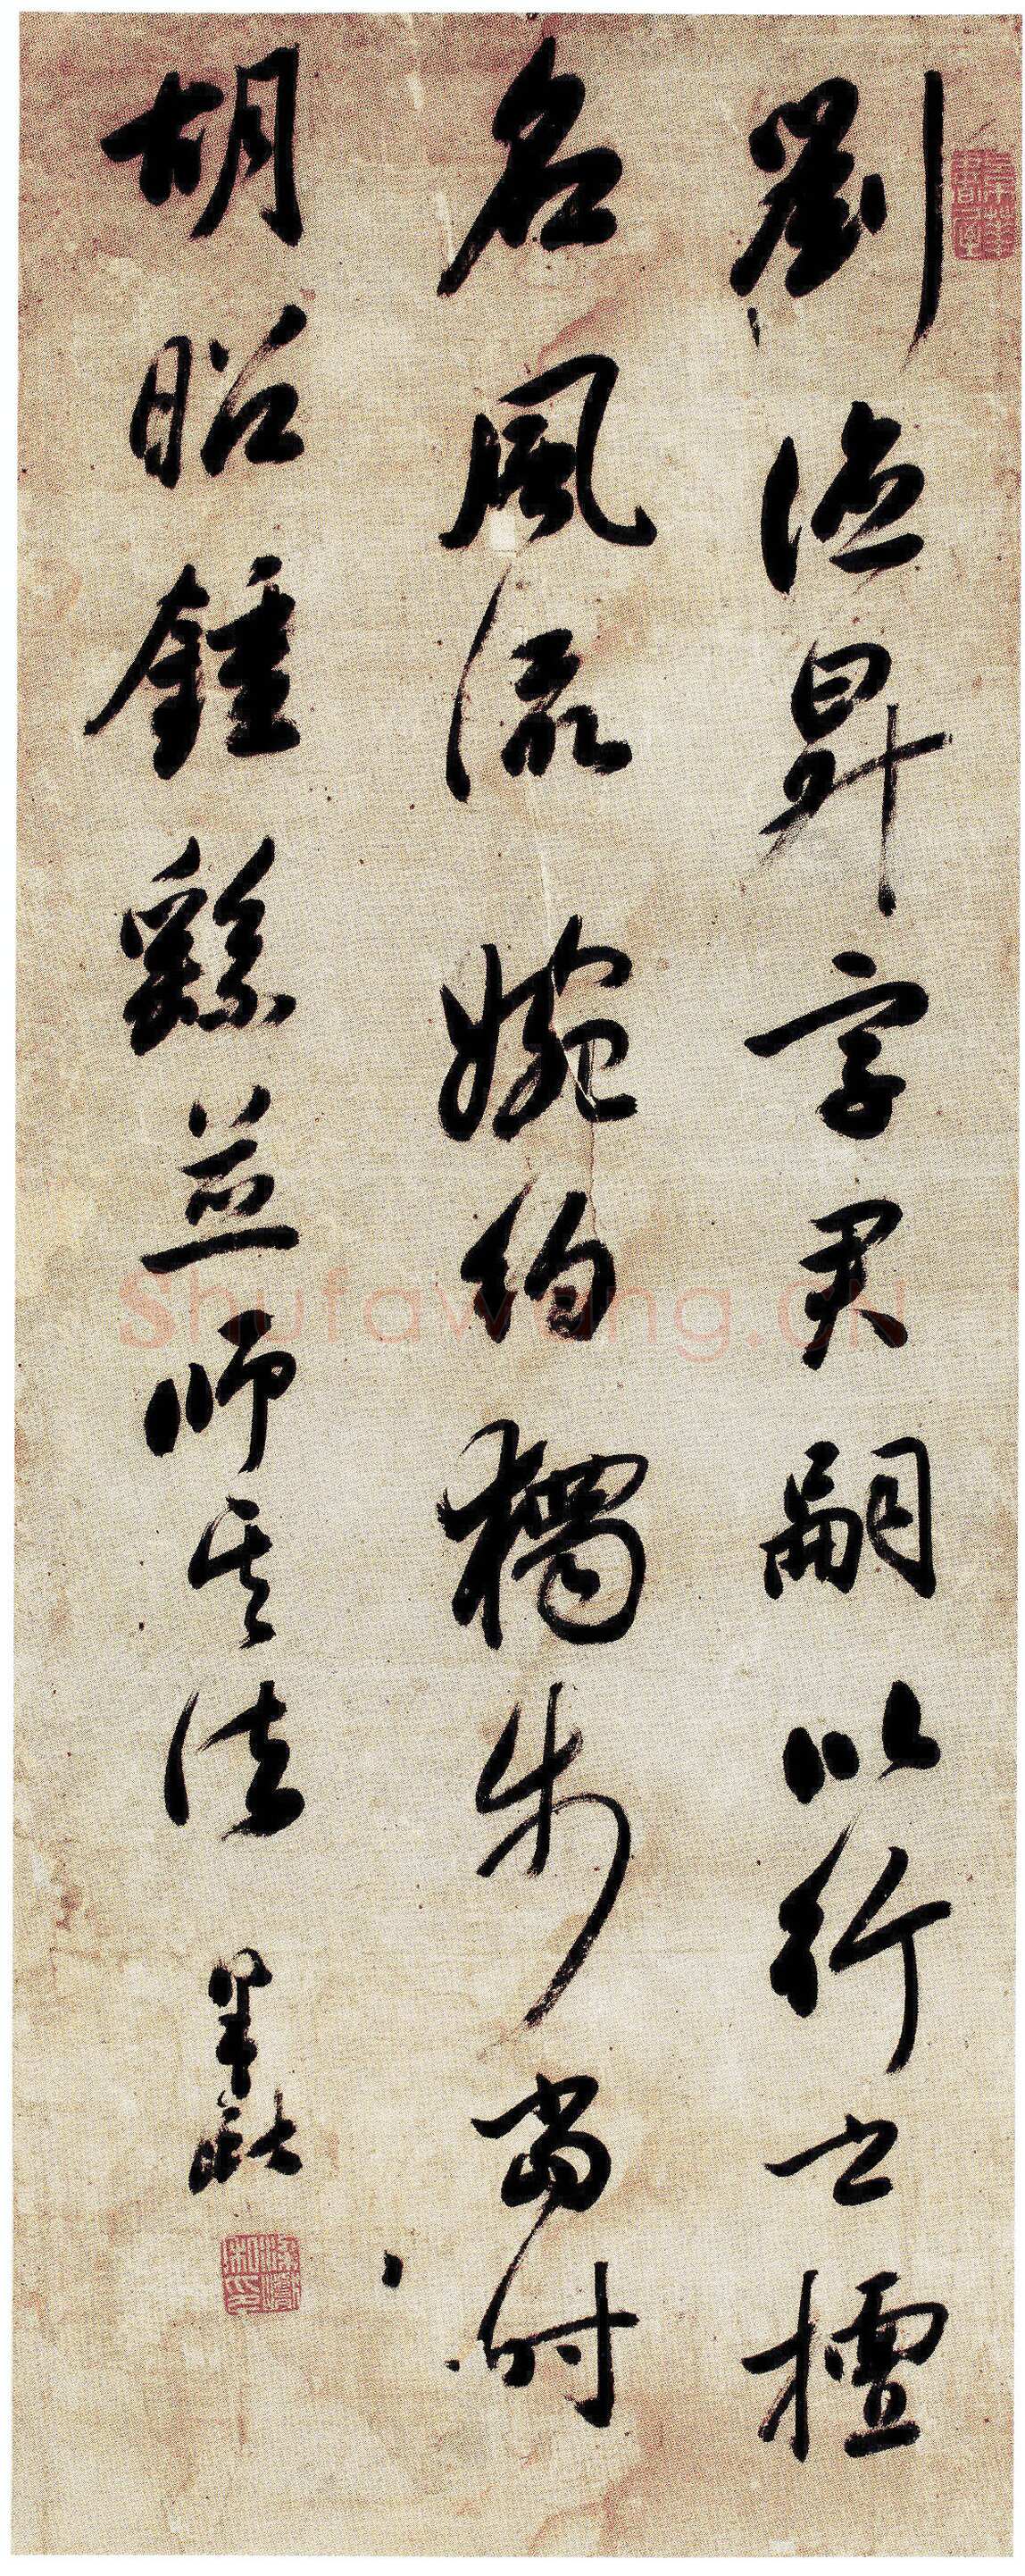 劉德昇字君嗣以行書擅
名風流婉約獨步當時
胡昭鍾繇並師其法
Shufawang.CN